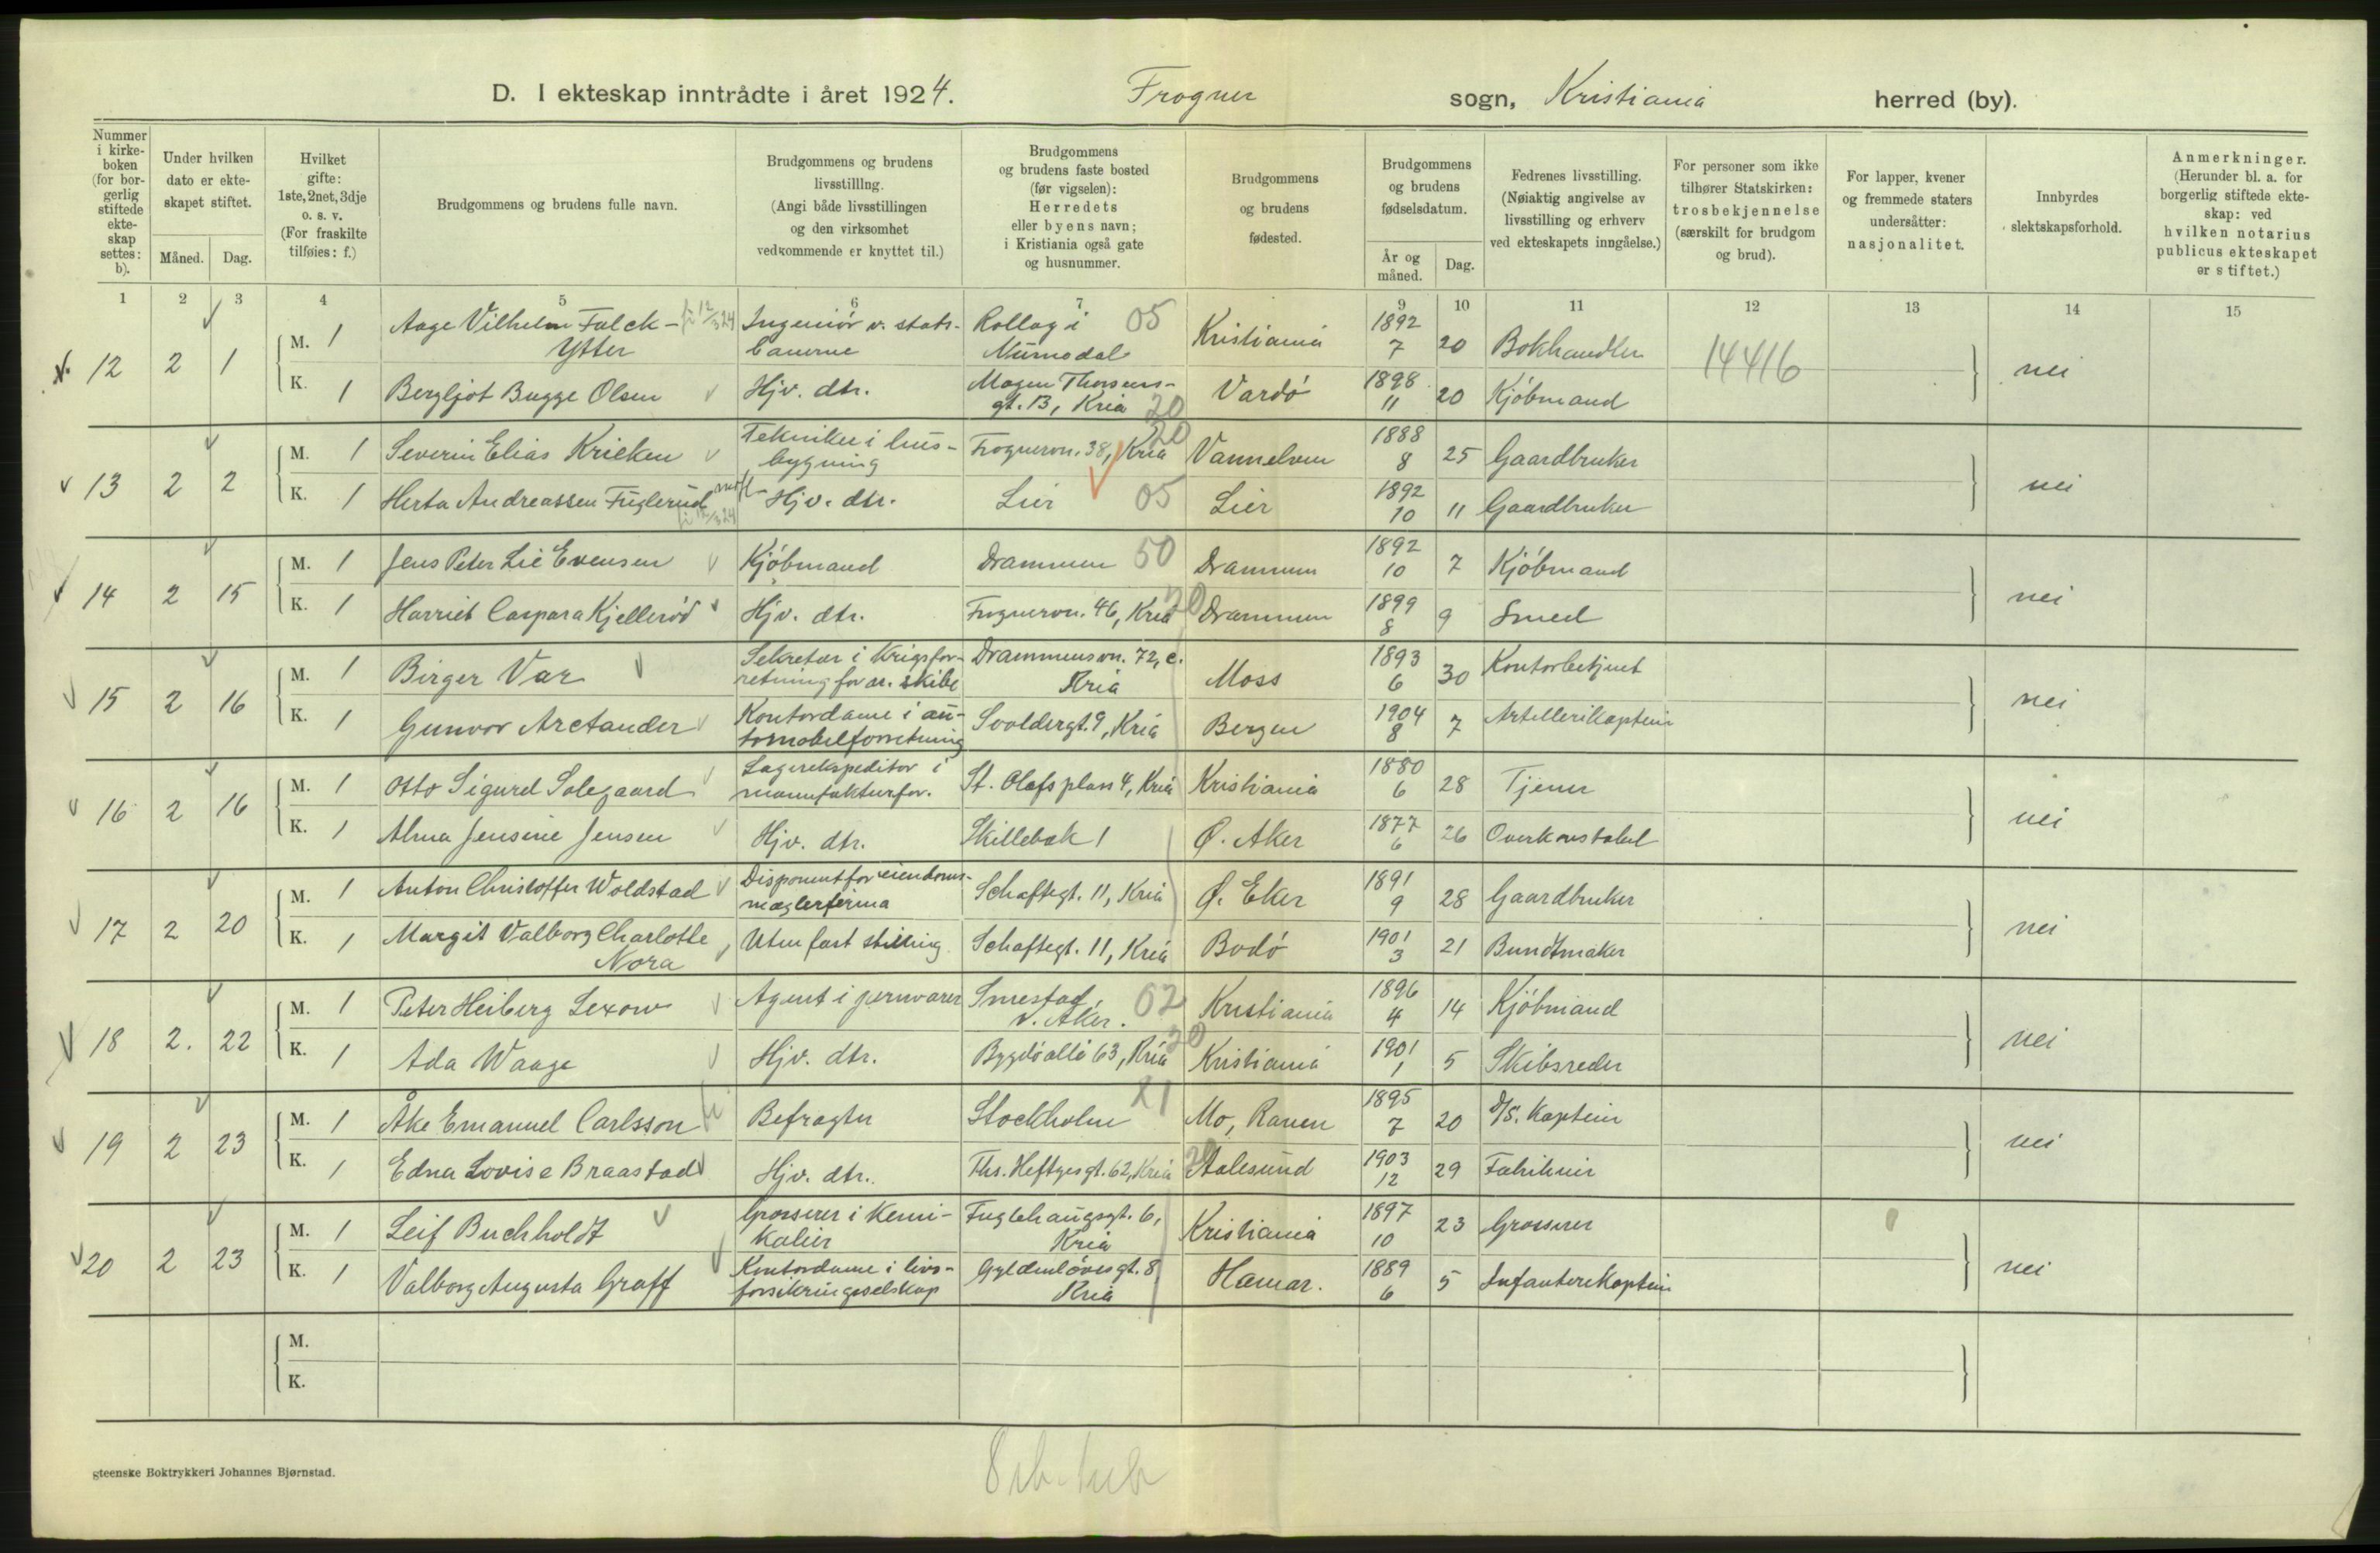 D. I ekteskap inntrådte i året 1924. Frogner sogn, Kristiania herred (by).
Nummer i kirke-boken (for bor-gerlig stiftede ekte-skap settes: b).
Under hvilken dato er ekte-skapet stiftet.
Måned. Dag.
Hvilket gifte: 1ste, 2net, 3dje o. s. v. (For fraskilte tilføies: f.)
Brudgommens og brudens fulle navn.
Brudgommens og brudens livsstilling. (Angi både livsstillingen og den virksomhet vedkommende er knyttet til.)
Brudgommens og brudens faste bosted (før vigselen): Herredets eller byens navn; i Kristiania også gate og husnummer.
Brudgommens og brudens fødested.
Brudgommens og brudens fødselsdatum.
År og måned. Dag.
Fedrenes livsstilling. (Nøiaktig angivelse av livsstilling og erhverv ved ekteskapets inngåelse.)
For personer som ikke tilhører Statskirken: trosbekjennelse (særskilt for brudgom og brud).
For lapper, kvener og fremmede staters undersåtter: nasjonalitet.
Innbyrdes slektskapsforhold.
Anmerkninger. (Herunder bl. a. for borgerlig stiftede ekte-skap: ved hvilken notarius publicus ekteskapet er stiftet.)
1 2 3 4 5 6 7 9 10 11 12 13 14 15
12 2 1 M. 1 Aage Vilhelm Falck-Ytter 12/3 24 Ingeniór v. stats-banerne Rollag i Numedal 05 Kristiania 1892 7 20 Bokhandler 14416 nei
K. 1 Bergljot Bugge Olsen Hjv. dtr. Magen Thorsens-gt. 13, Kria 20 Vardó 1898 11 20 Kjóbmand
13 2 2 M. 1 Severin Elias Kricken Tekniker i hus-bygning Frognervn. 38, Kria 20 Vannelven 1888 8 25 Gaardbruker nei
K. 1 Herta Andreassen Fuglerud 12/3 24 Hjv. dtr. Lier 05 Lier 1892 10 11 Gaardbruker
14 2 15 M. 1 Jens Peter Lie Evensen Kjóbmand Drammen 50 Drammen 1892 10 7 Kjóbmand nei
K. 1 Harriet Caspara Kjelleród Hjv. dtr. Frognervn. 46, Kria 20 Drammen 1899 8 9 Smed
15 2 16 M. 1 Birger Var Sekretær i Krigsfor-retning for ar. skibe Drammensvn. 72, c. Kria Moss 1893 6 30 Kontorbetjent nei
K. 1 Gunvor Arctander Kontordame i au-tomobilforretning Svoldergt. 9, Kria Bergen 1904 8 7 Artellerikaptein
16 2 16 M. 1 Otto Sigurd Solegaard Lagerekspeditor i manufakturfor. St. Olafs plass 4, Kria Kristiania 1880 6 28 Tjener nei
K. 1 Alma Jensine Jensen Hjv. dtr. Skillebæk 1 Ø. Aker 1877 6 26 Overkonstabel
17 2 20 M. 1 Anton Christoffer Woldstad Disponent for eiendoms-mæglerfirma Schaftegt. 11, Kria Ø. Eker 1891 9 28 Gaardbruker nei
K. 1 Margit Valborg Charlotte Nora Uten fast stilling Schaftegt. 11, Kria Bodó 1901 3 21 Bundtmaker
18 2. 22 M. 1 Peter Heiberg Lexow Agent i jernvarer Smestad v. Aker. 02 Kristiania 1896 4 14 Kjóbmand nei
K. 1 Ada Waage Hjv. dtr. Bygdó allé 63, Kria 20 Kristiania 1901 1 5 Skibsreder
19 2 23 M. 1 Åke Emanuel Carlsson Befragter Stockholm 21 Mo, Ranen 1895 7 20 D/S. Kaptein nei
K. 1 Edna Lovise Braastad Hjv. dtr. Ths. Heftyesgt. 62, Kria 20 Aalesund 1903 12 29 Fabrikeier
20 2 23 M. 1 Leif Buchholdt Grosserer i Kemi-kalier Fuglehaugsgt. 6, Kria Kristiania 1897 10 23 Grosserer nei
K. 1 Valborg Augusta Graff Kontordame i livs-forsikringsselskap Gyldenlóvesgt. 8 Kria Hamar. 1889 6 5 Infanterikaptein
M.
K.
gteenske Boktrykkeri Johannes Bjørnstad.